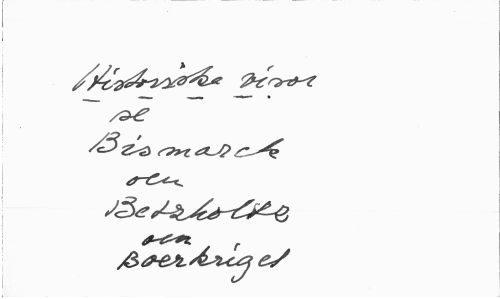 Historiska visor
se
Bismarck
och
Betzholtz
och
Boerkriget